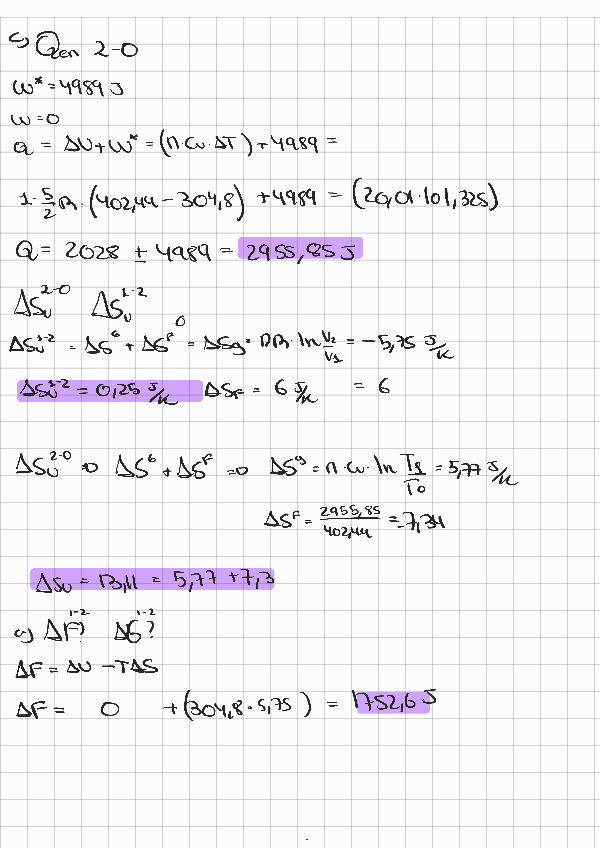 c) Q en 2-0
W* = 4989 J
W = 0
Q = ΔU + W* = (n·Cv·ΔT) + 4989 =
1·5/2 R·(402,44 - 304,8) + 4989 = (20,01·101,325)
Q = 2028 ± 4989 = 2955,85 J
ΔSu²⁻⁰ ΔSu¹⁻²
ΔSu¹⁻² = ΔS^G + ΔS^F = ΔSg = nR·ln V2/V1 = -5,75 J/K
0
ΔSu¹⁻² = 0,25 J/K ΔSF = 6 J/K = 6
ΔSu²⁻⁰ => ΔS^G + ΔS^F => ΔS^g = n·Cv·ln Tf/T0 = 5,77 J/K
ΔS^F = 2955,85/402,44 = 7,34
ΔSu = 13,11 = 5,77 + 7,3
ΔF¹⁻²? ΔG¹⁻²?
ΔF = ΔU - TΔS
ΔF = 0 + (304,8·5,75) = 1752,6 J